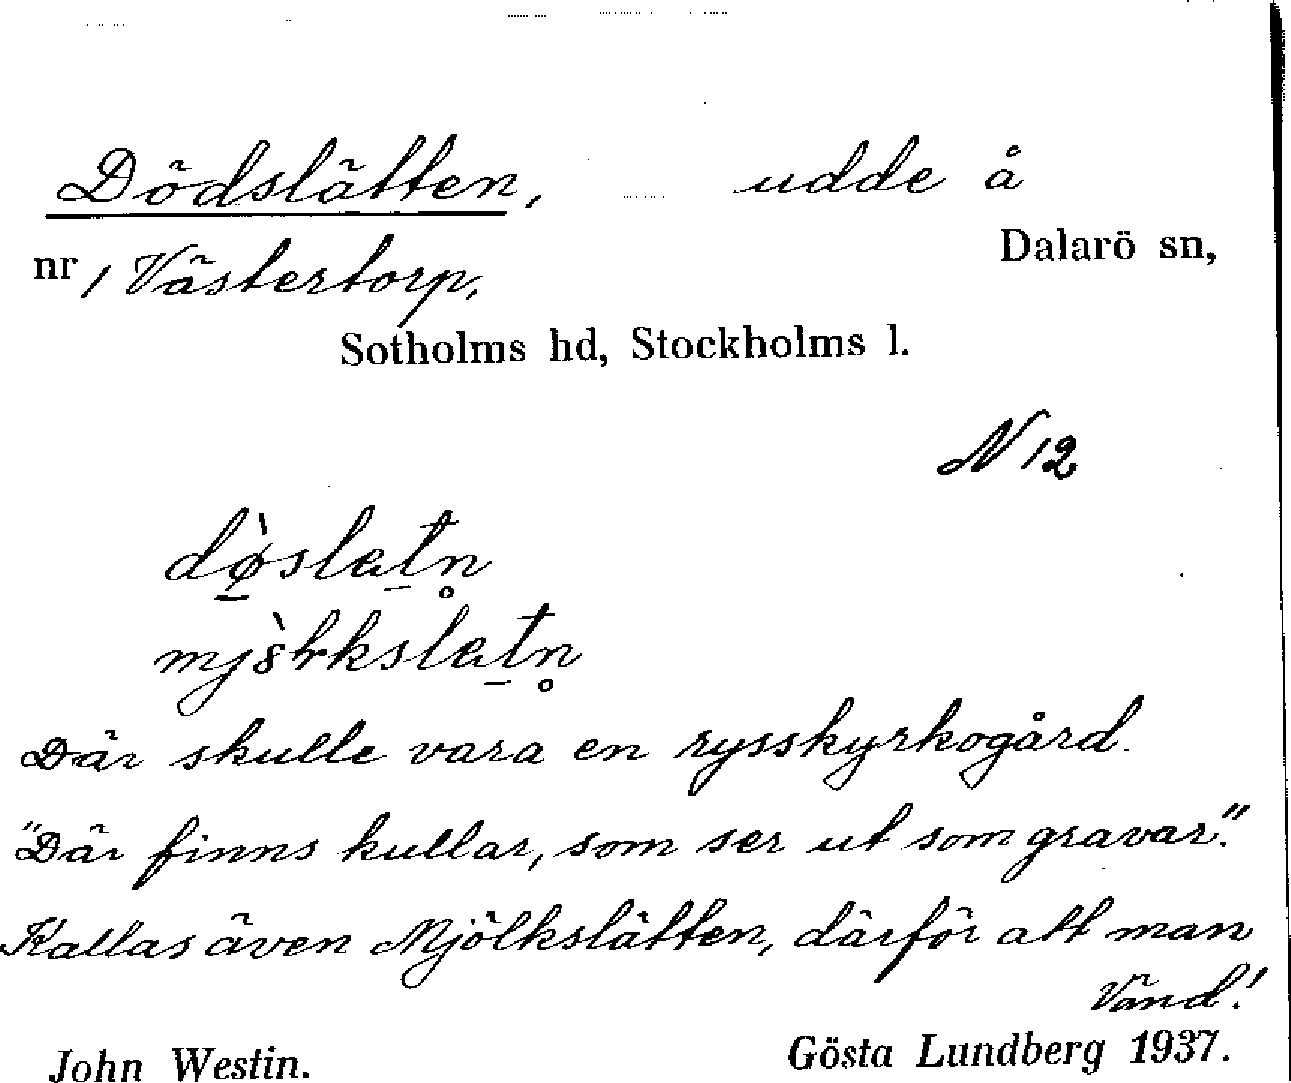 Dödslätten, udde å
Dalarö sn,
nr 1 Västertorp,
Sotholms hd, Stockholms l.
N 12
Där skulle vara en rysskyrkogård.
"Där finns kullar, som ser ut som gravar."
Kallas även Mjölkslätten, därför att man
Vänd!
John Westin. Gösta Lundberg 1937.